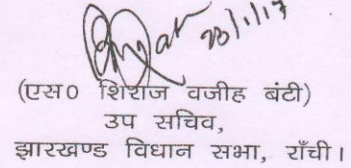 23/1/17
(एस० शिराज वजीह बंटी)
उप सचिव,
झारखण्ड विधान सभा, राँची।